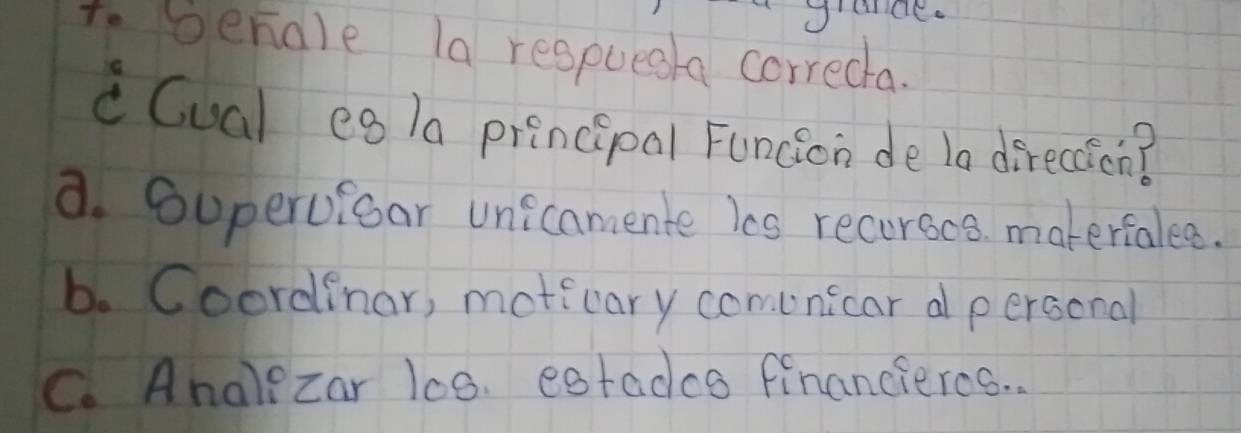 grande.
7. Señale la respuesta correcta.
¿Cual es la principal Funcion de la direccion?
a. Supervisar unicamente los recursos materiales.
b. Coordinar, motivar y comunicar al personal
c. Analizar los estados financieros..